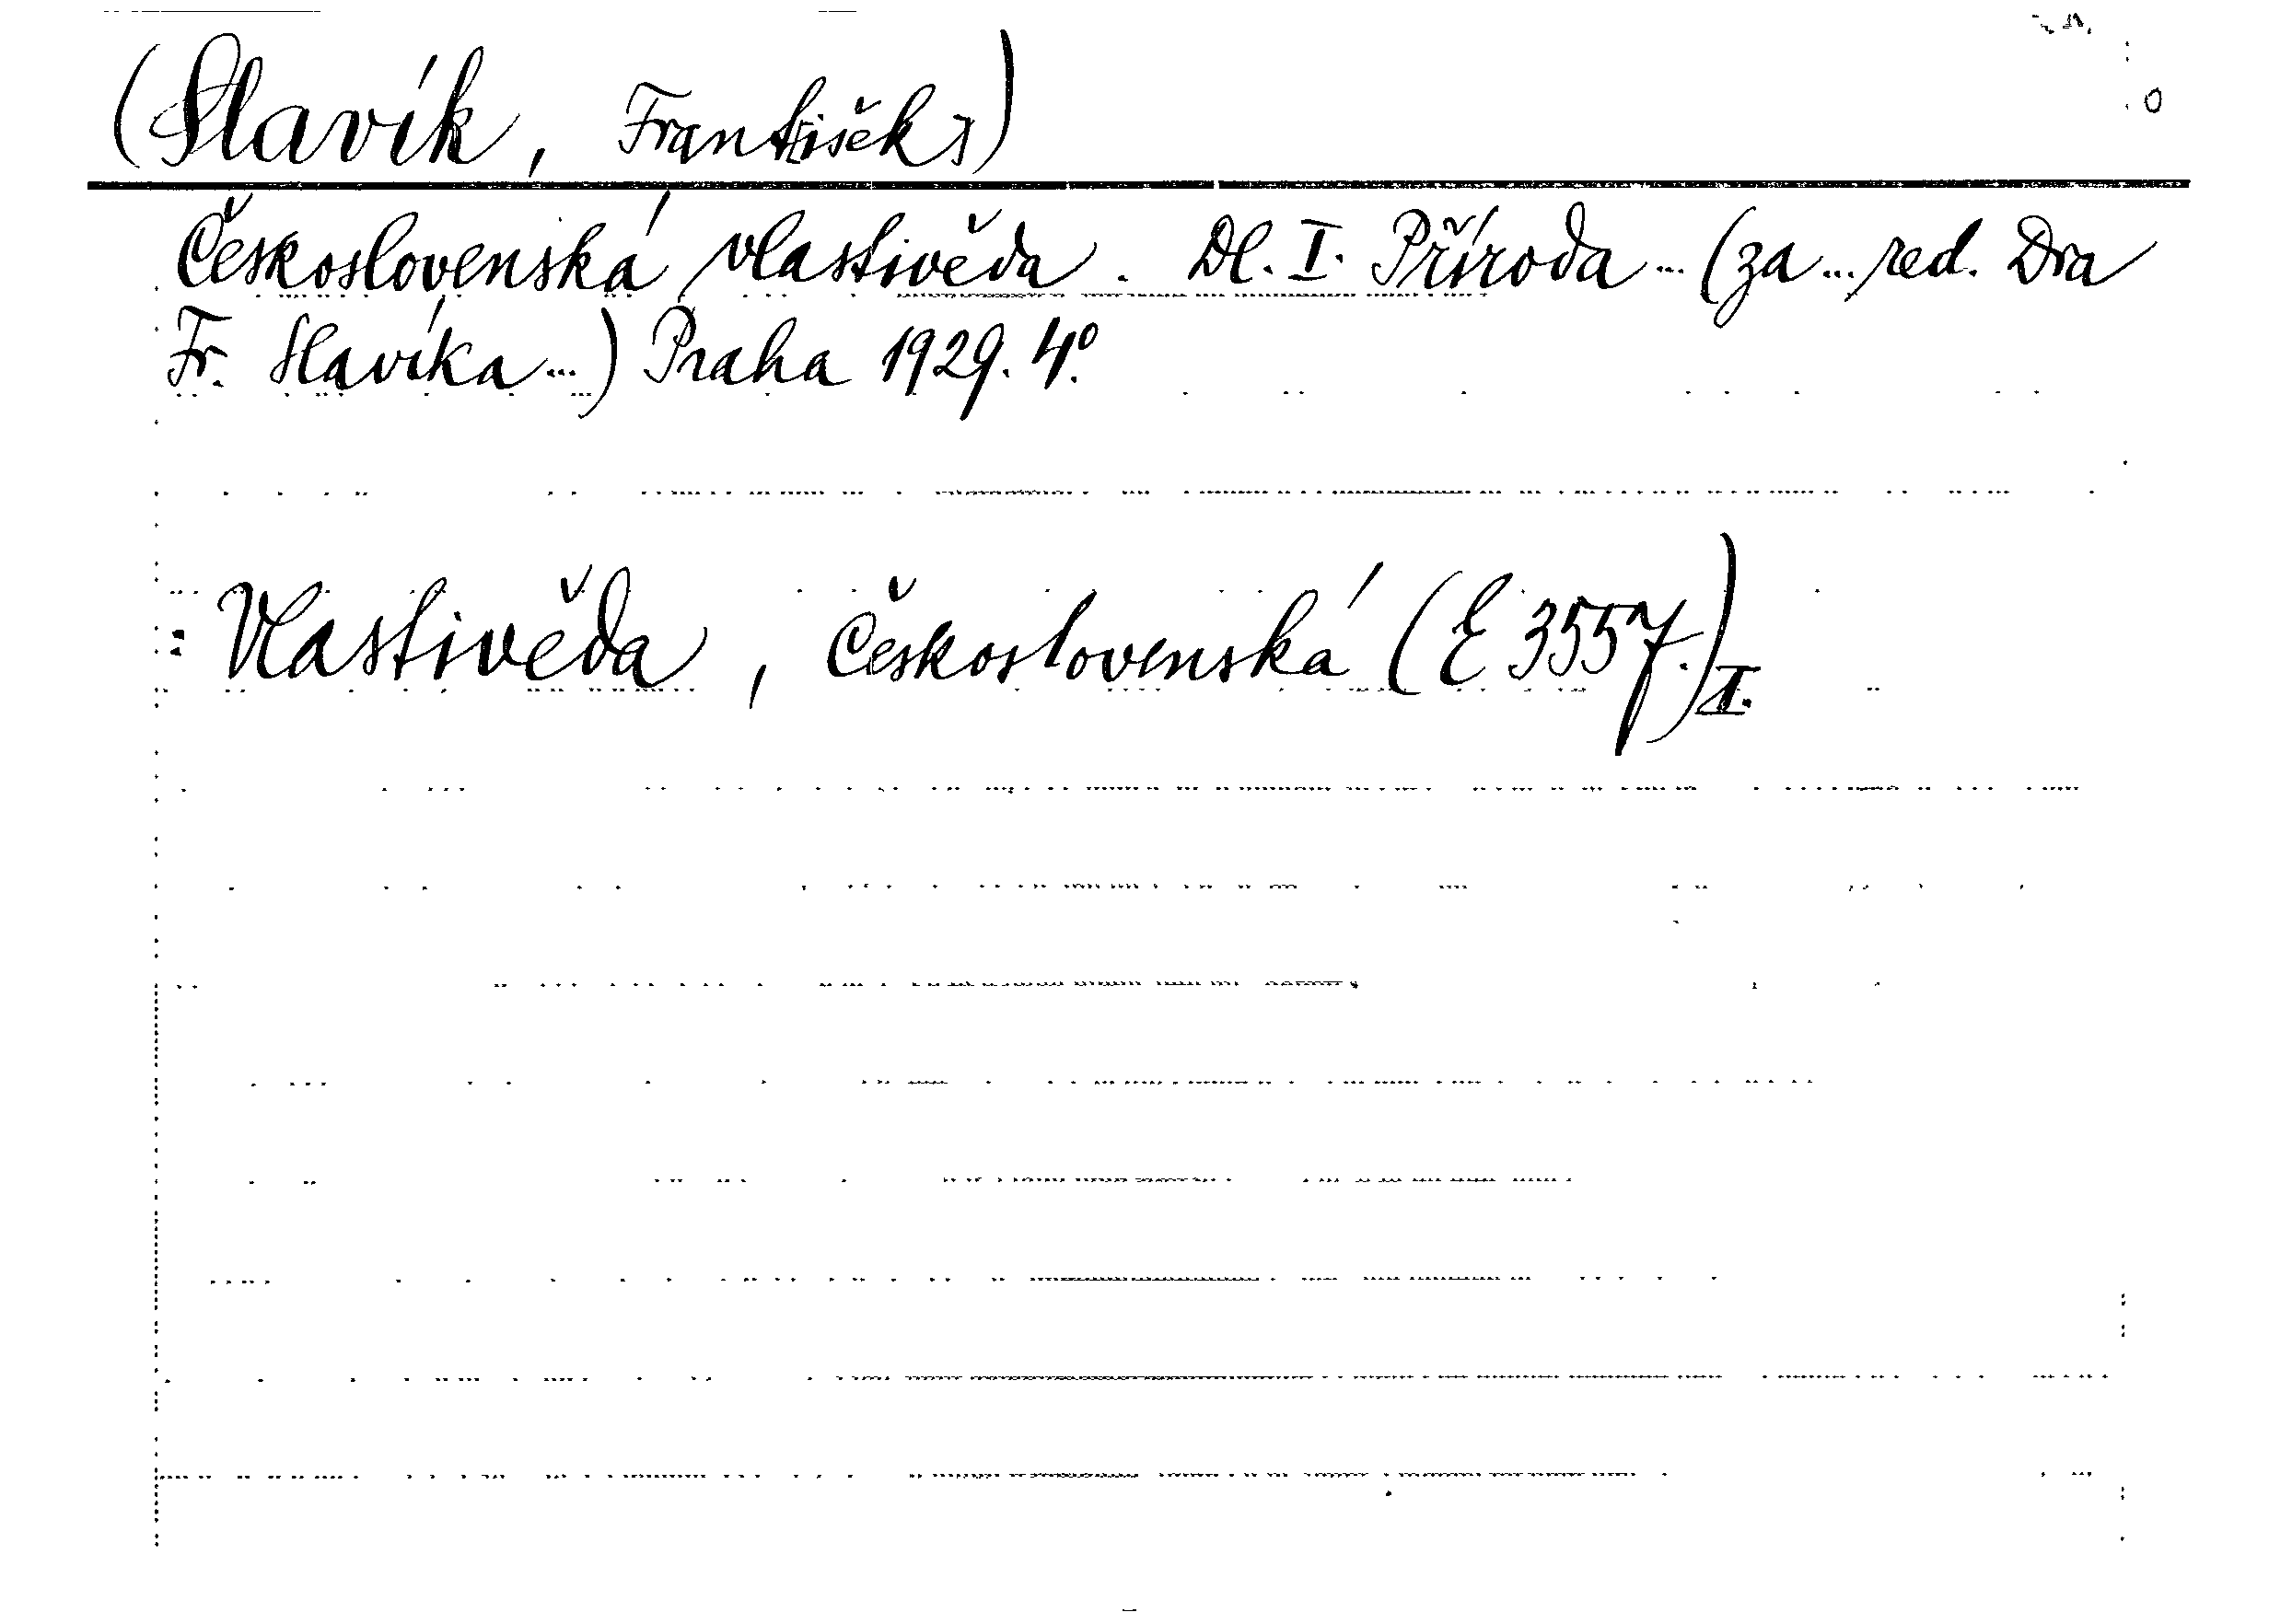 (Slavík, Fr[antišek])
Československá vlastivěda. Dl. I. Příroda... (za... red. Dra
Fr. Slavíka...) Praha 1929. 4º.
: Vlastivěda, Československá (E 3557.) I.